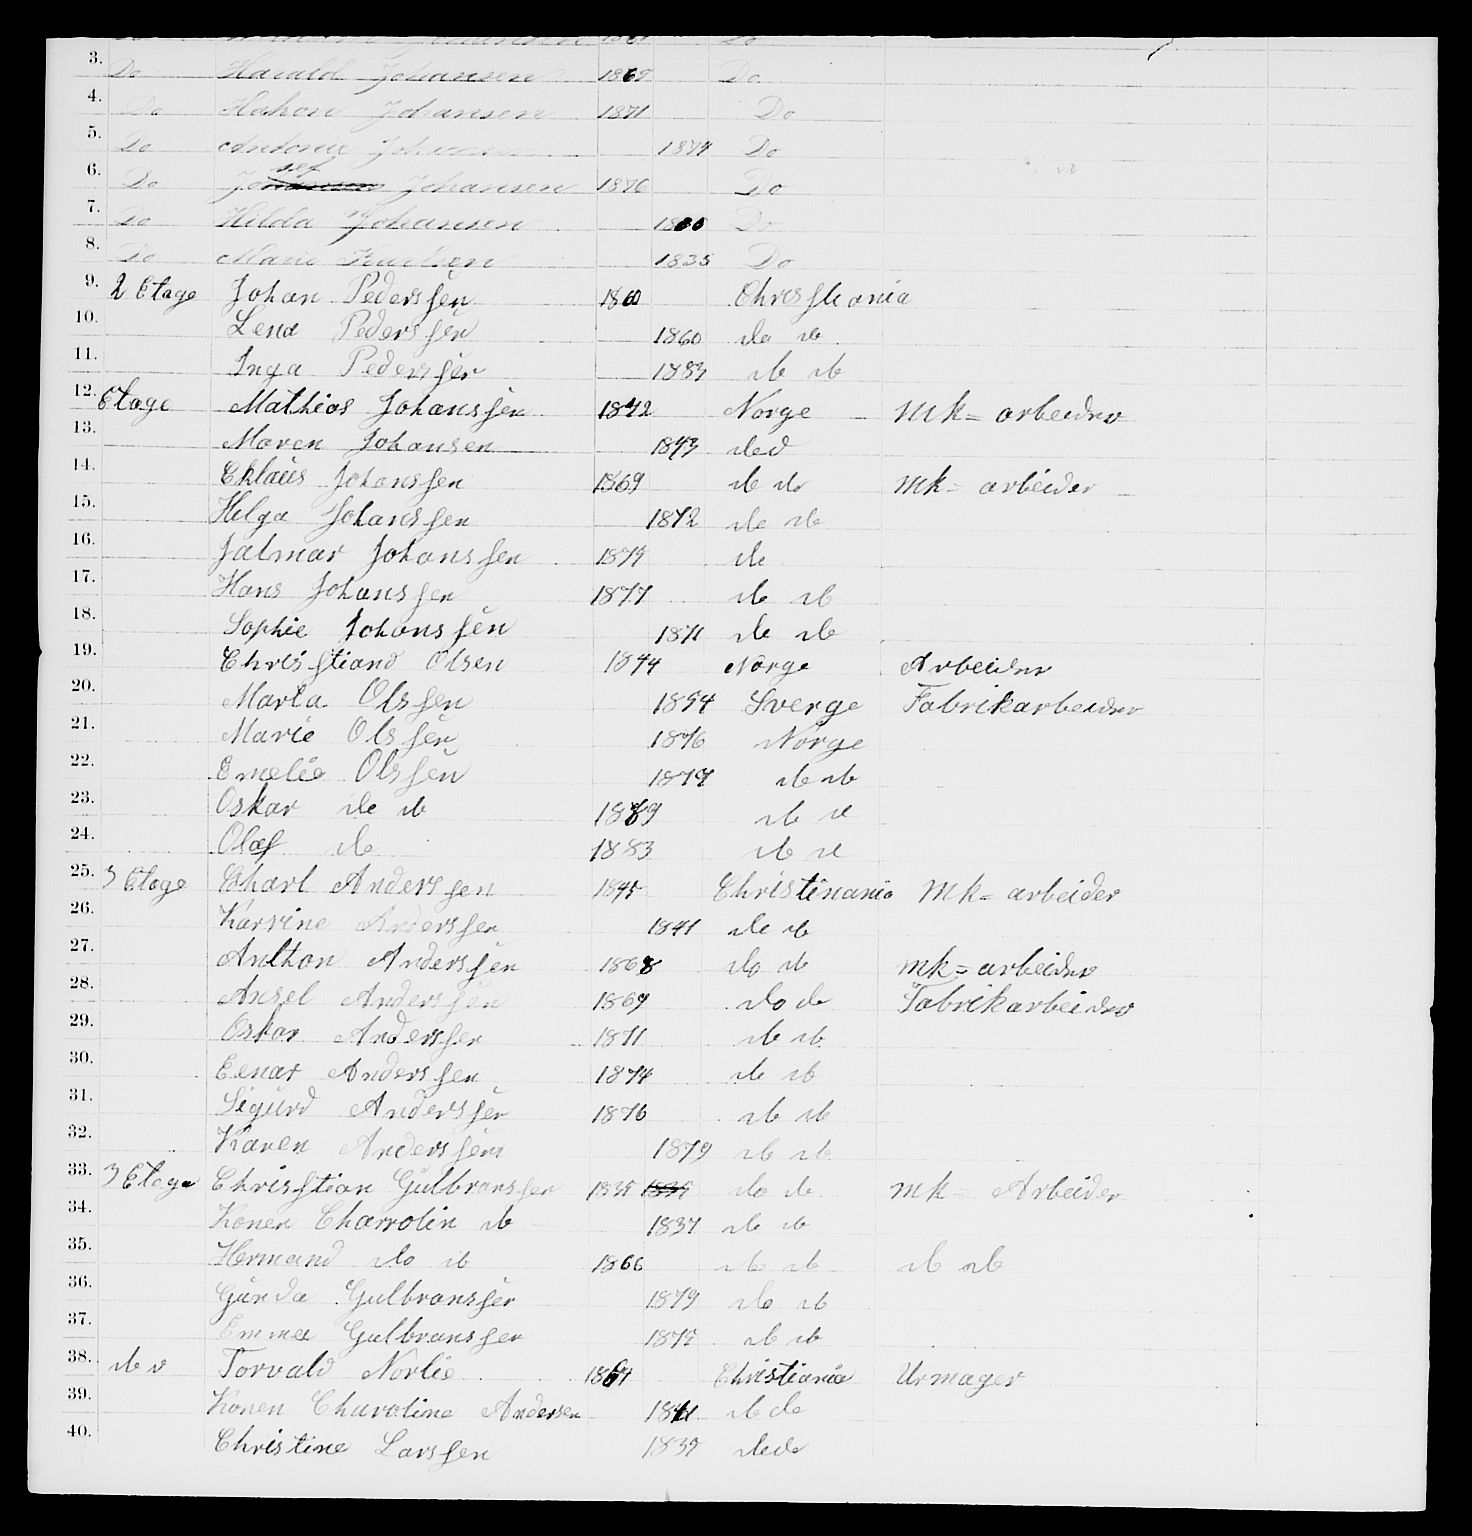 3. Do Harald Johansen 1869 Do
4. Do Hakon Johansen 1871 Do
5. Do Antonie Johansen 1874 Do
6. Do Josef Johansen 1876 Do
7. Do Hilda Johansen Do
8. Do Marie Knudsen 1835 Do
9. 2 Etage Johan Pederssen 1860 Christiania
10. Lena Pederssen 1860 do do
11. Inga Pederssen 1883 do do
12. Etage Mathias Johanssen 1842 Norge mk = arbeider
13. Maren Johansen 1843 do do
14. Cklaus Johanssen 1869 do do mk = arbeider
15. Helga Johanssen 1872 do do
16. Jalmar Johanssen 1874 do
17. Hans Johanssen 1877 do do
18. Sophie Johanssen 1871 do do
19. Christiand Olsen 1844 Norge Arbeider
20. Marta Olssen 1854 Sverge Fabrikarbeider
21. Marie Olssen 1876 Norge
22. Emelie Olssen 1877 do do
23. Oskar do do 1889 do do
24. Olaf do 1883 do do
25. 3 Etage Charl Anderssen 1845 Christinania mk = arbeider
26. Karvine Anderssen 1841 do do
27. Anthon Anderssen 1868 do do mk = arbeider
28. Axsel Anderssen 1869 do do Fabrikarbeider
29. Oskar Anderssen 1871 do do
30. Eenar Anderssen 1874 do do
31. Sigurd Anderssen 1876 do do
32. Karen Anderssen 1879 do do
33. 3 Etage Chrisstian Gulbranssen 1835 1835 do do mk = Arbeider
34. Konen Charrolin do 1837 do do
35. Hermand do do 1866 do do do do
36. Gunda Gulbranssen 1879 do do
37. Emma Gulbranssen 1874 do do
38. do Torvald Norlie 1864 Christiania Urmager
39. Konen Charoline Andersen 1841 do do
40. Christine Larssen 1839 do do